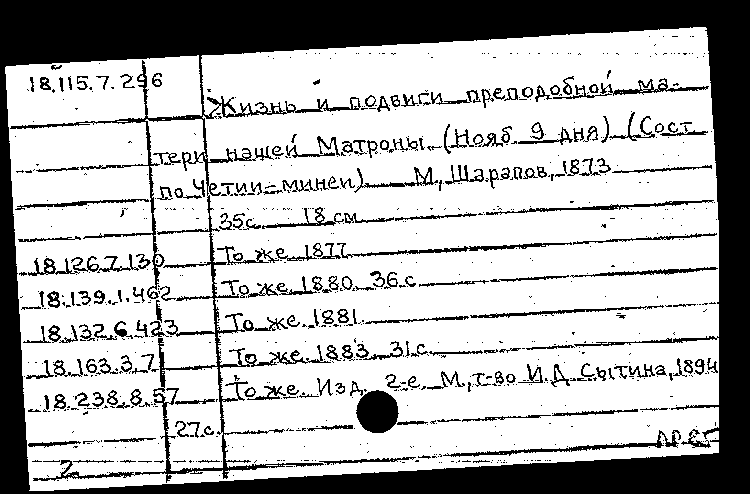 18.115.7.296
Жизнь и подвиги преподобной ма-
тери нашей Матроны (Нояб 9 дня) (Сост
по Четии-минеи) М, Шарапов, 1873
35с. 18 см
18.126.7.130 То же. 1877
18.139.1.462 То же. 1880. 36 с
18.132.6.423 То же. 1881
18.163.3.71 То же. 1883. 31 с.
18.238.8.57 То же. Изд. 2-е. М, т-во И.Д. Сытина, 1894
27с.
2